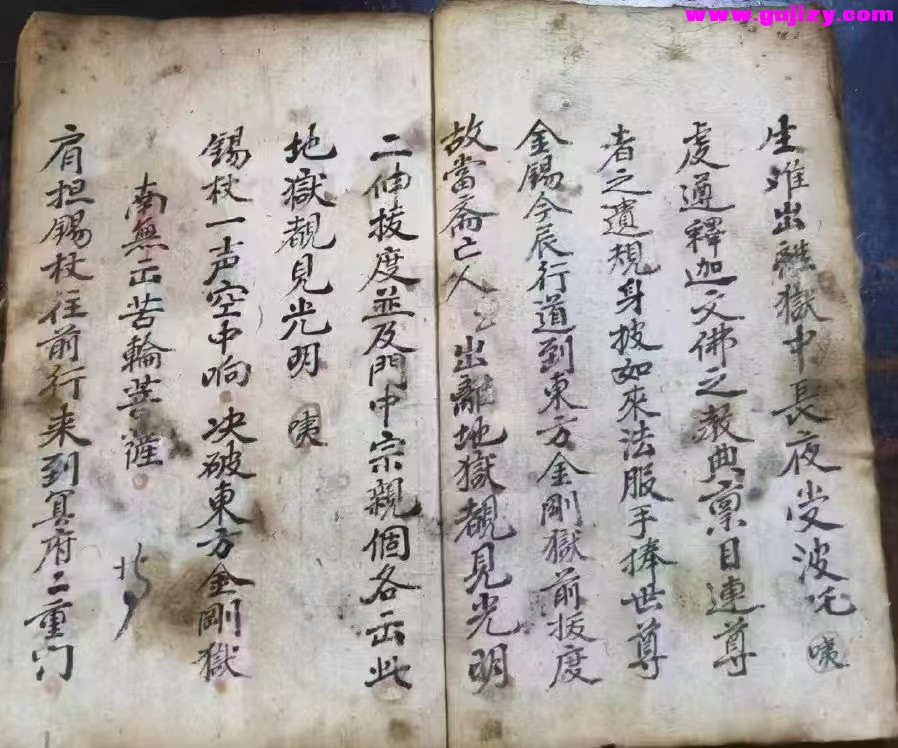 www.gujizy.com
生难出離獄中長夜受波吒 咦
虔遵釋迦文佛之教典稟目連尊
者之遺規身披如來法服手捧世尊
金錫今辰行道到東方金剛獄前拔度
故當斋亡人 出離地獄覩見光明
二伸拔度並及門中宗親個各出此
地獄覩見光明 咦
錫杖一声空中响 决破東方金剛獄
南無出苦輪菩薩
肩担錫杖往前行来到冥府二重门